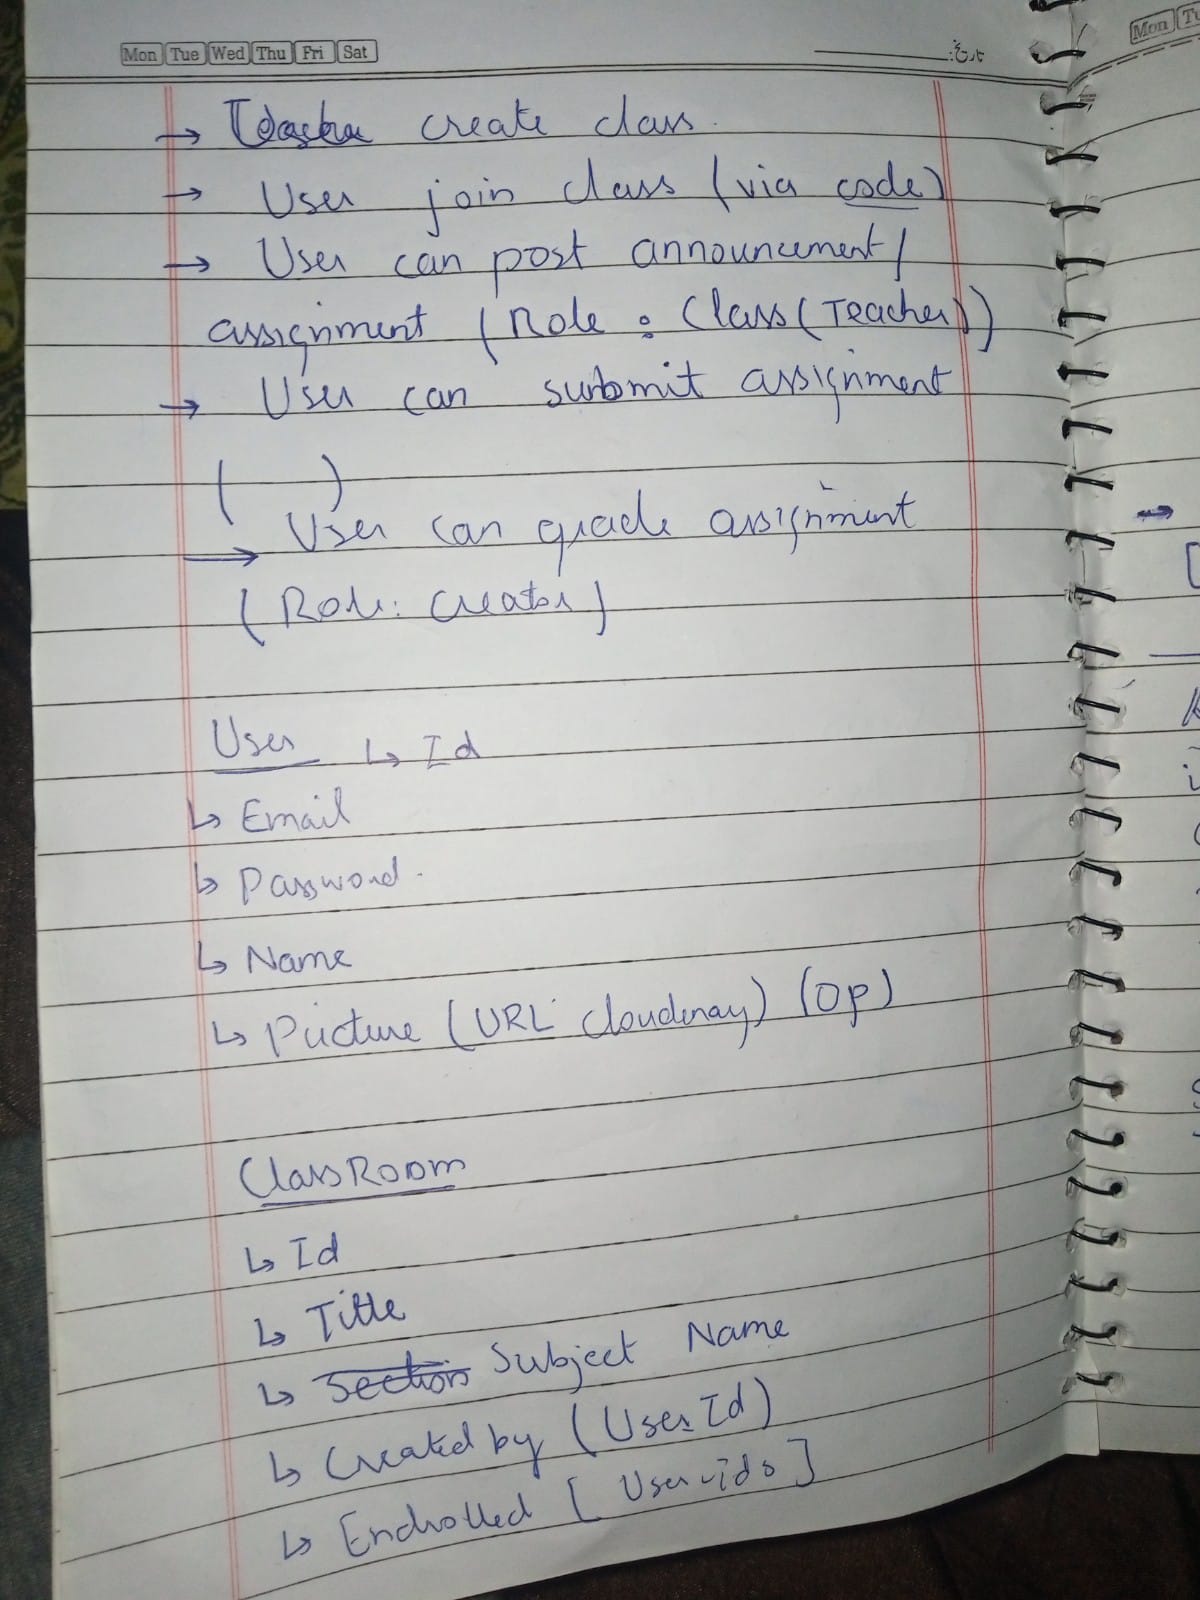 Mon Tue Wed Thu Fri Sat
تاریخ:
→ Teacher create class.
→ User join class (via code)
→ User can post announcement/
assignment (Role : Class(Teacher))
→ User can submit assignment
( )
→ User can grade assignment
(Role: Creator)
User ↳ Id
↳ Email
↳ Password.
↳ Name
↳ Picture (URL cloudenay) (Op)
ClassRoom
↳ Id
↳ Title
↳ Section Subject Name
↳ Created by (User Id)
↳ Endrolled [User-ids]
Mon